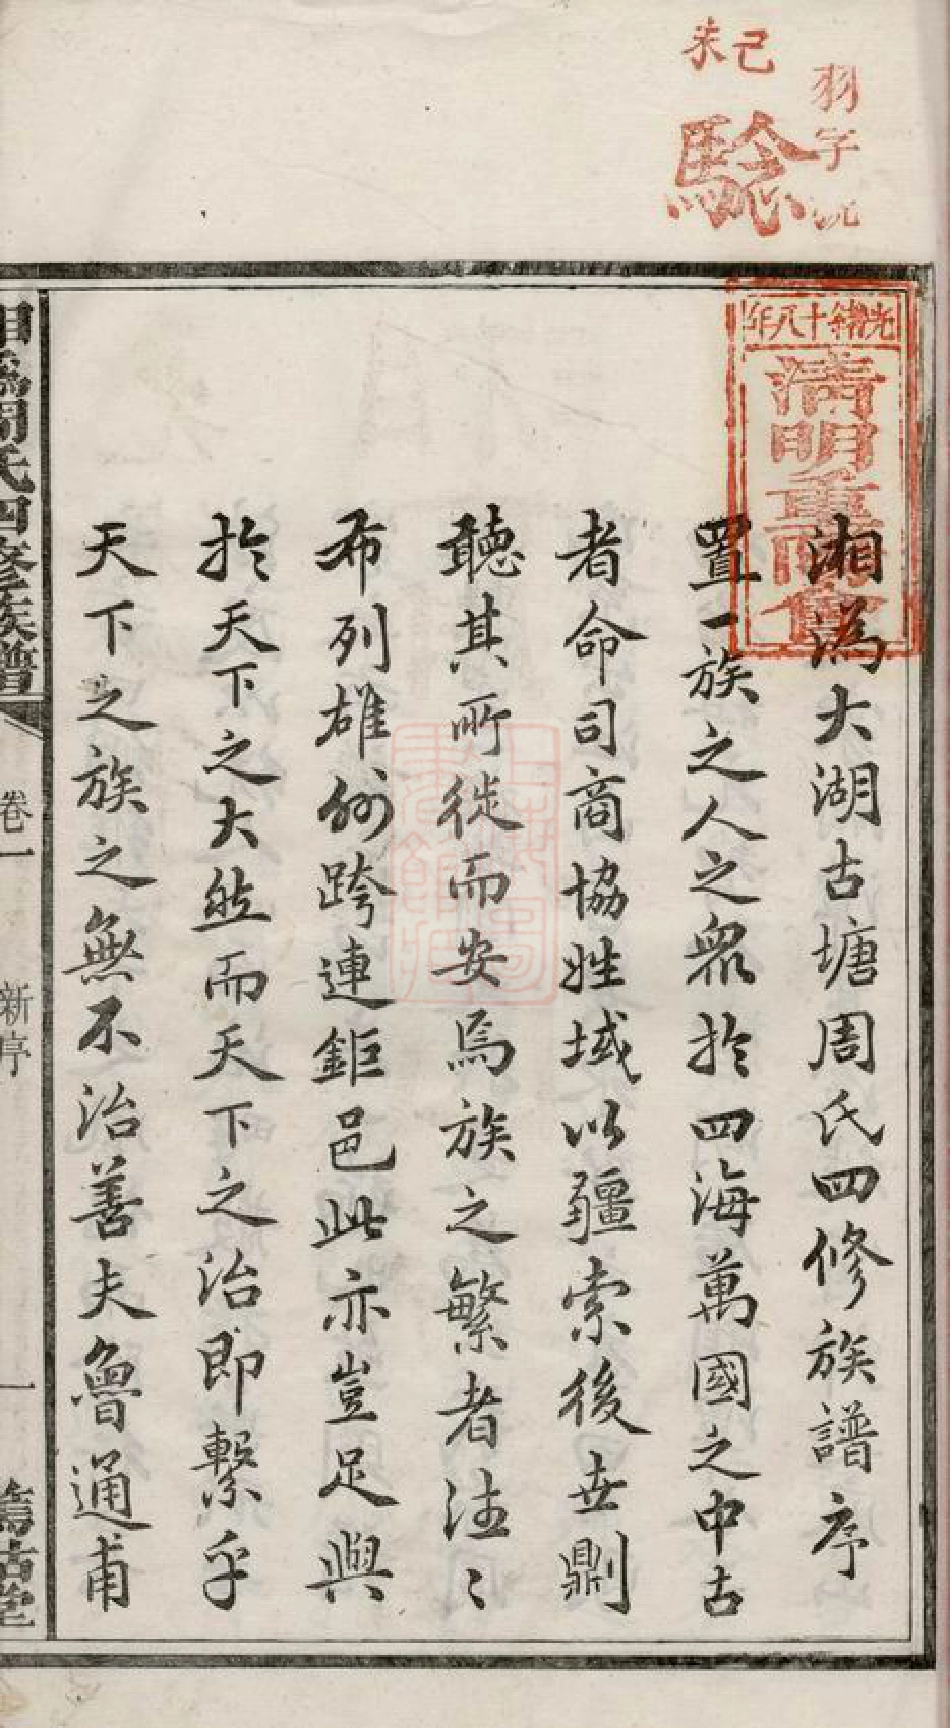 羽字號
己未
騐
光緒十八年
清明重修會
湘溈大湖古塘周氏四修族譜序
置一族之人之眾扵四海萬國之中古
者命司商協姓域以疆索後世剿
聽其所徙而安焉族之繁者往〻
布列雄州跨連鉅邑此亦豈足與
扵天下之大然而天下之治即繫乎
天下之族之無不治善夫魯通甫
湘溈周氏四修族譜
卷一
新序
一
篤祜堂